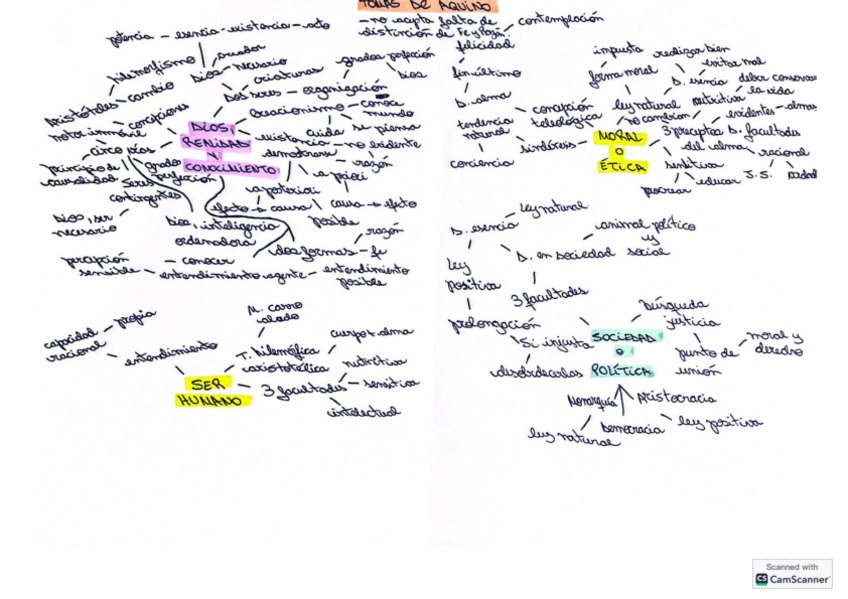 TOMÁS DE AQUINO
- no acepta falta de
distinción de Fe y Razón.
potencia - esencia - existencia - acto
hilemorfismo
creador
dios - necesario
criaturas
grados perfección
dios
Aristóteles - cambio
Dos seres - organización
motor inmóvil
concepciones
creacionismo - conoce
mundo
cuida
se piensa
DIOS,
REALIDAD
Y
CONOCIMIENTO
cinco vías
existencia - no evidente
demostrar
razón
a priori
a posteriori
principio de
causalidad
grados
perfección
Seres
contingentes
efecto → causa
causa → efecto
posible
dios, ser
necesario
dios, inteligencia
ordenadora
razón
dos formas - fe
percepción
sensible
conocer
entendimiento agente - entendimiento
posible
capacidad
racional
propia
entendimiento
SER
HUMANO
M. carro
alado
T. hilemórfica
aristotélica
cuerpo + alma
3 facultades
nutritiva
sensitiva
intelectual
contemplación
felicidad
fin último
D. alma
tendencia
natural
conciencia
concepción
teleológica
sindéresis
MORAL
O
ÉTICA
impuesta
forma moral
realizar bien
evitar mal
ley natural
D. esencia
no cambian
nutritiva
deber conservar
la vida
evidentes - almas
3 preceptos D. facultades
del alma
racional
sensitiva
educar
procrear
J.S.
ley natural
D. esencia
animal político
y
social
D. en sociedad
ley
positiva
3 facultades
prolongación
Si injusta
desobedecerlas
SOCIEDAD
O
POLÍTICA
búsqueda
justicia
punto de
unión
moral y
derecho
Monarquía
Aristocracia
Democracia
ley natural
ley positiva
Scanned with
CS CamScanner